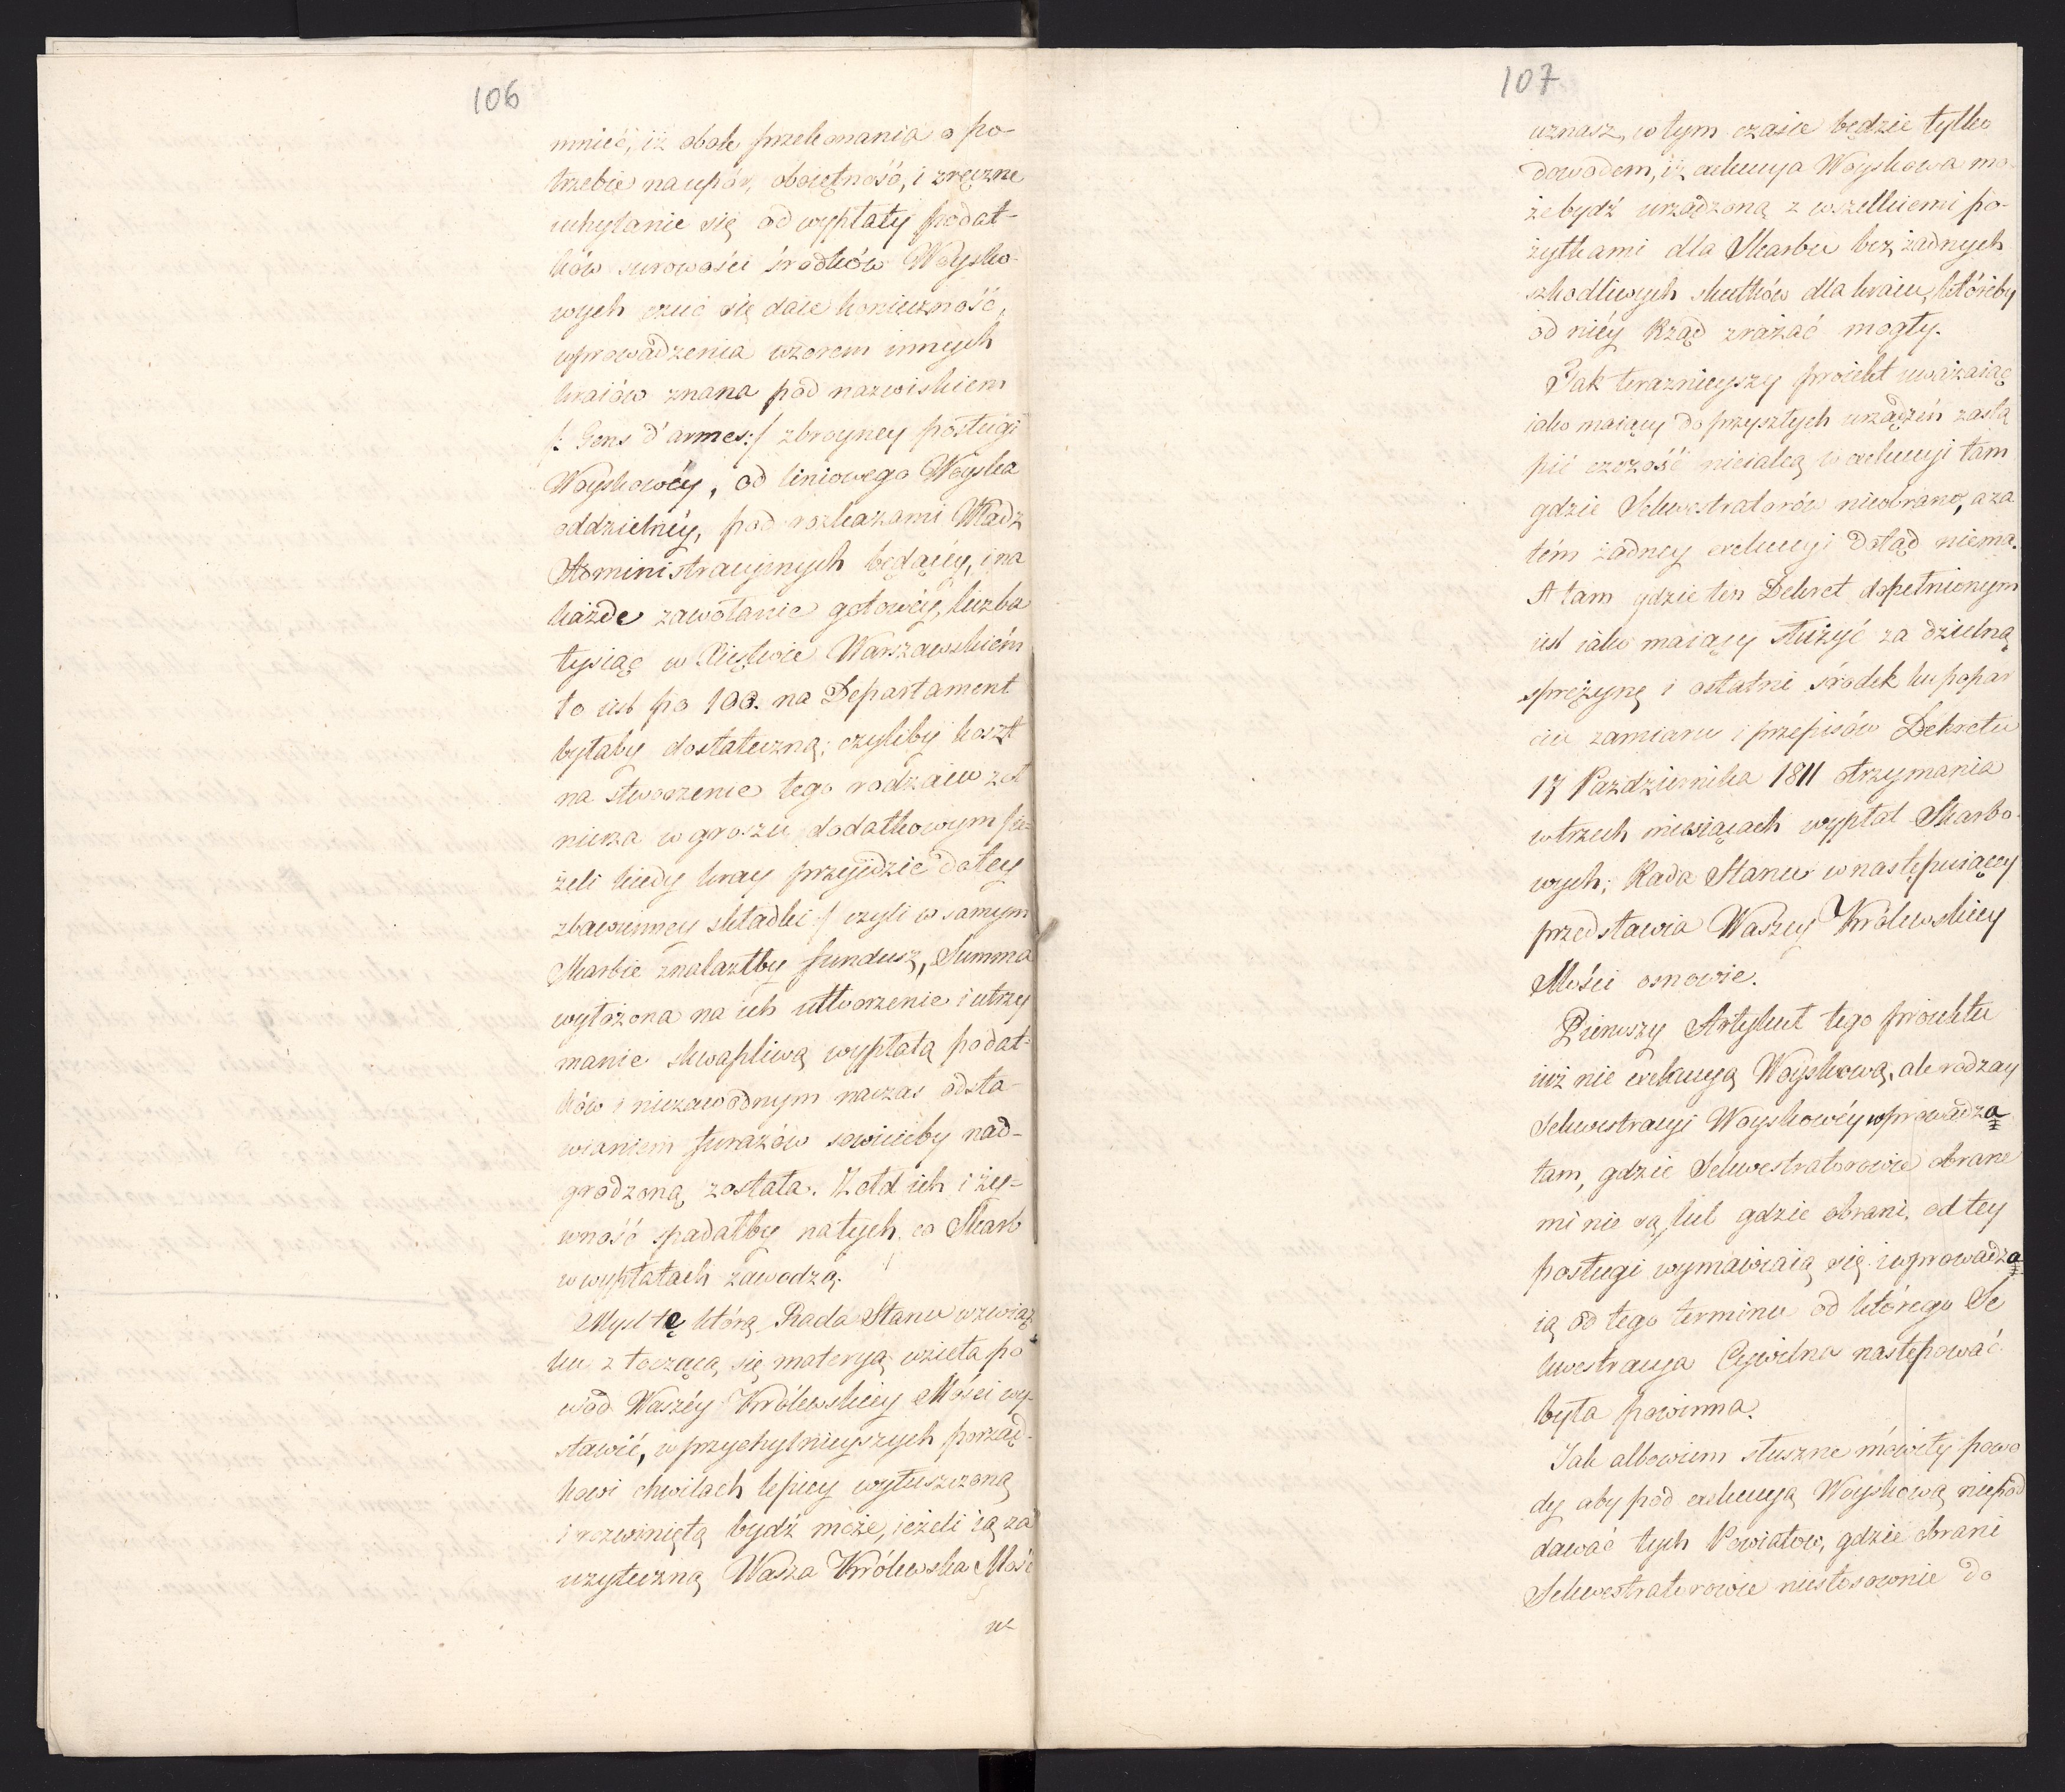 106
mnieć, iż obok przekonania o po-
trzebie na upór, oboiętność, i zręczne
uchylanie się od wypłaty podat-
ków surowości środków Woysko-
wych czuć się daie konieczność,
wprowadzenia wzorem innych
kraiów znana pod nazwiskiem
/: Gens d'armes:/ zbroyney posługi
Woyskowéy, od liniowego Woyska
oddzielnéy, pod rozkazami Władz
Administracyinych będącéy, i na
każde zawołanie gotowéy, liczba
tysiąc w Xięstwie Warszawskiém
to iest po 100. na Departament
byłaby dostateczną; czyliby koszt
na stworzenie tego rodzaiu żoł
nierza w groszu dodatkowym /ie-
żeli kiedy kray przyidzie do tey
zbawienney składki:/ czyli w samym
Skarbie znalazłby fundusz, Summa
wyłożona na ich utworzenie i utrzy
manie skwapliwą wypłatą podat-
ków i niezawodnym naczas odsta-
wianiem furażów sowicieby nad-
grodzoną została. Żołd ich i ży-
wność spadałby na tych co Skarb
w wypłatach zawodzą.
Myśl tę którą Rada Stanu w związ
ku z toczącą się materyą wzięła po
wód Waszéy Królewskiey Mości wy-
stawić, w przychylnieyszych porząd-
kowi chwilach lepiey wyłuszczoną
i rozwiniętą bydź może, ieżeli ią za
użyteczną Wasza Królewska Mość
uz
107
uznasz, w tym czasie będzie tylko
dowodem, iż exekucya Woyskowa mo-
że bydź urządzoną z wszelkiemi po-
żytkami dla Skarbu bez żadnych
szkodliwych skutków dla kraiu, któreby
od niéy Rząd zrażać mogły.
Tak teraznieyszy proiekt uważaiąc
iako maiący do przyszłych urządzeń zastą
pić czczość nieiaką w exekucyi tam
gdzie Sekwestratorów nieobrano, a za
tém żadney exekucyi dotąd niema.
A tam gdzie ten Dekret dopełnionym
iest iako maiący służyć za dzielną
sprężynę i ostatni środek ku popar
ciu zamiaru i przepisów Dekretu
17 Pazdziernika 1811 otrzymania
w trzech miesiącach wypłat Skarbo-
wych; Rada Stanu w następuiącey
przedstawia Waszey Królewskiey
Mości osnowie.
Pierwszy Artykuł tego proiektu
iuż nie exekucyą Woyskową, ale rodzay
Sekwestracyi Woyskowéy wprowadza
tam, gdzie Sekwestratorowie obrane
mi nie są, lub gdzie obrani, od tey
posługi wymawiaią się i wprowadza
ią od tego terminu od którego Se
kwestracya Cywilna następować
była powinna.
Jak albowiem słuszne mówiły powo
dy aby pod exekucyą Woyskową niepod
dawać tych Powiatów, gdzie obrani
Sekwestratorowie niestosownie do